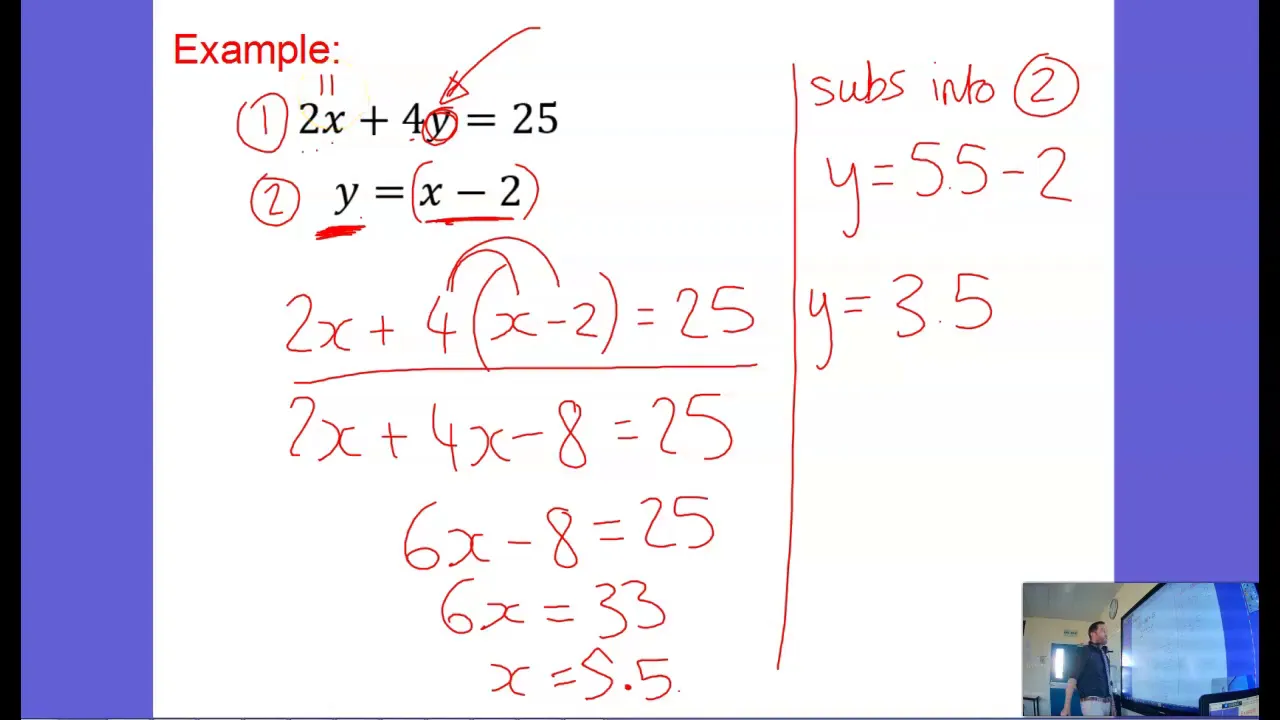 Example:
11
① 2x + 4y = 25
② y = (x − 2)
2x + 4(x − 2) = 25
2x + 4x − 8 = 25
6x − 8 = 25
6x = 33
x = 5.5
subs into ②
y = 5.5 − 2
y = 3.5